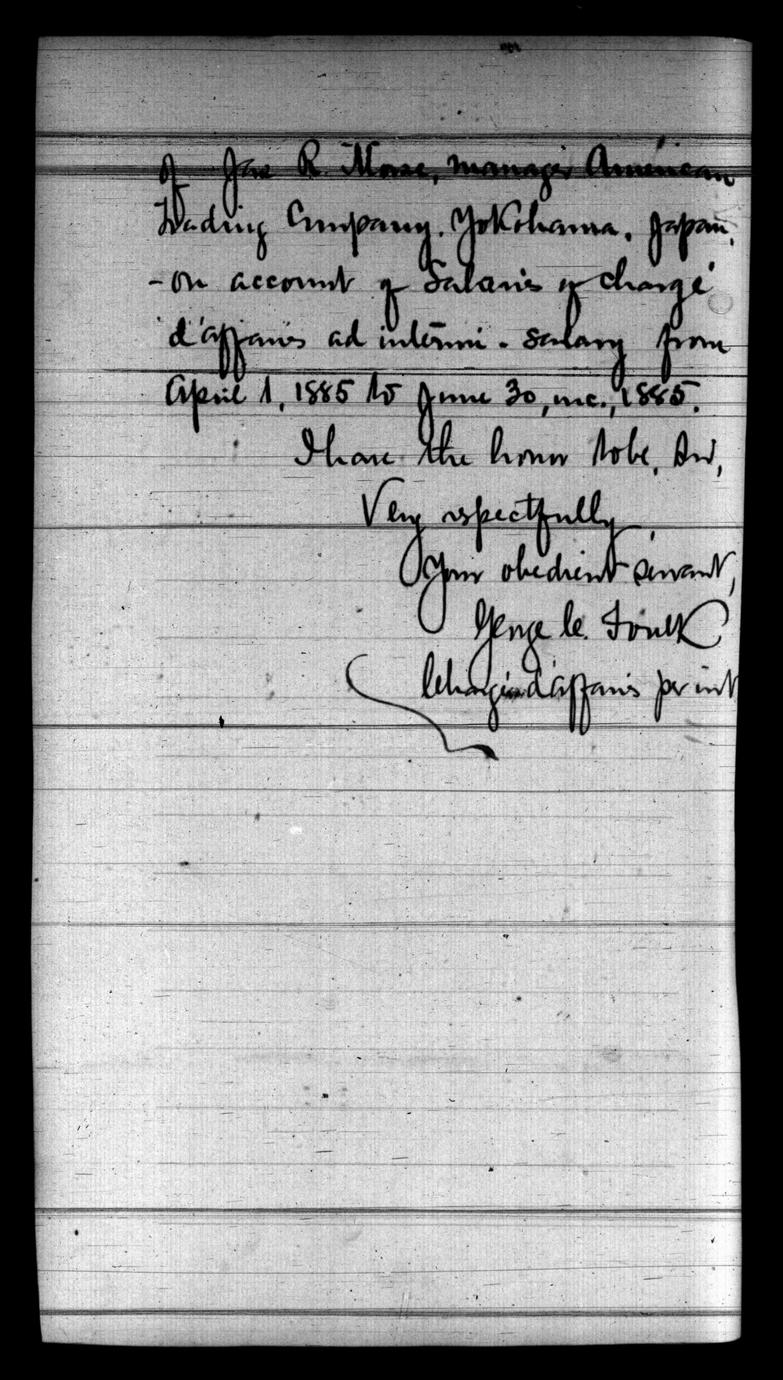 of Jas R. Morse, manager American
Trading Company, Yokohama, Japan,
- on account of Salaries of chargé
d'affaires ad interim - salary from
April 1, 1885 to June 30, inc., 1885.
I have the honor to be, Sir,
Very respectfully
Your obedient servant,
George C. Foulk
Chargé d'affaires per int